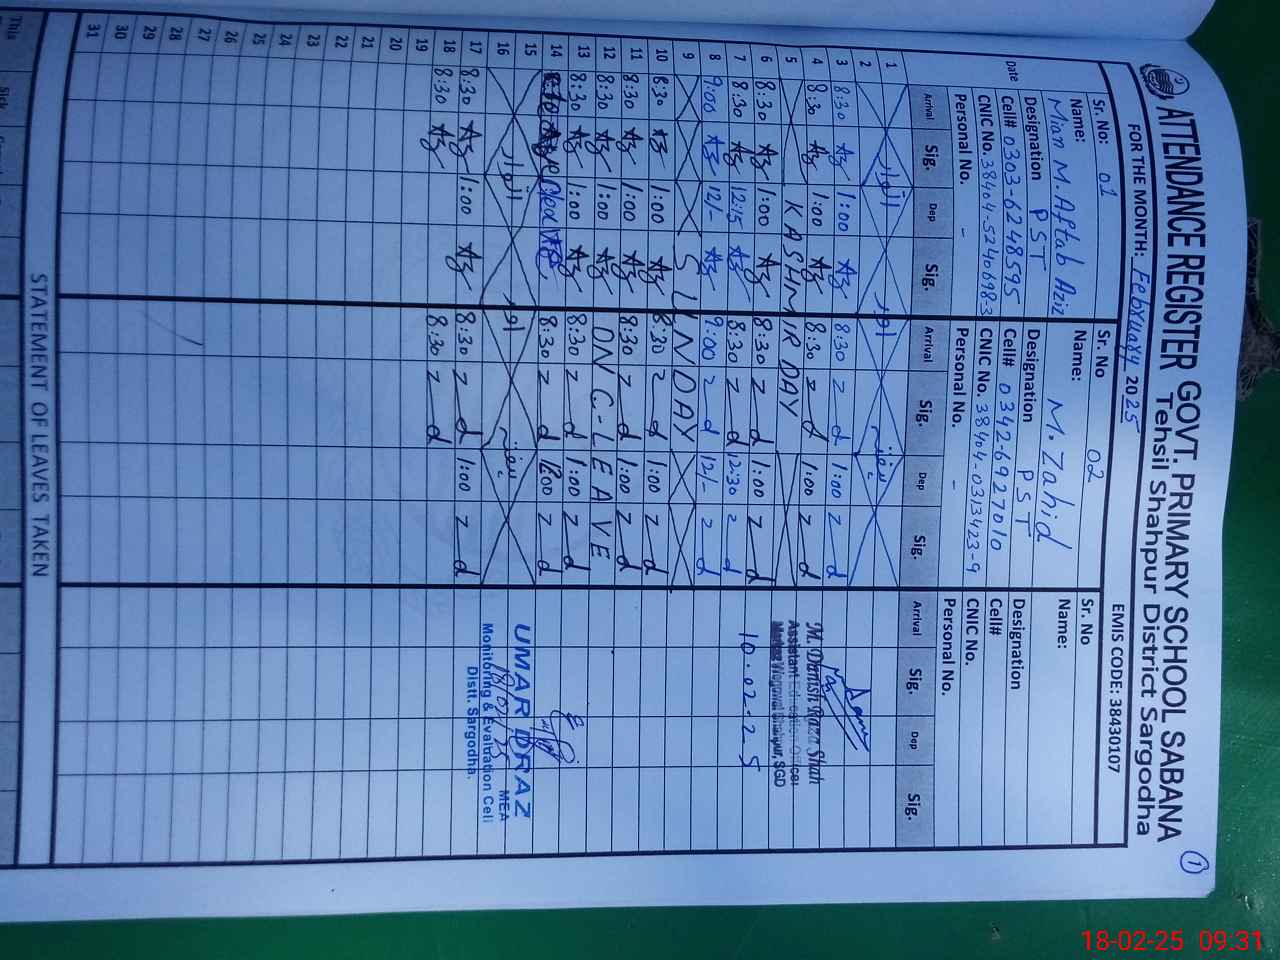 ATTENDANCE REGISTER GOVT. PRIMARY SCHOOL SABANA
Tehsil Shahpur District Sargodha
1
FOR THE MONTH: February 2025 EMIS CODE: 38430107
Sr. No: 01 Sr. No 02 Sr. No
Name: Mian M. Aftab Aziz Name: M. Zahid Name:
Designation PST Designation PST Designation
Cell# 0303-6248595 Cell# 0342-6927010 Cell#
CNIC No. 38404-5240698-3 CNIC No. 38404-0313423-9 CNIC No.
Personal No. - Personal No. - Personal No.
Date Arrival Sig. Dep Sig. Arrival Sig. Dep Sig. Arrival Sig. Dep Sig.
1
2 اتوار اور ہفتہ
3 8:30 Az 1:00 Az 8:30 z d 1:00 z d
4 8:30 Az 1:00 Az 8:30 z d 1:00 z d
5 KASHMIR DAY
6 8:30 Az 1:00 Az 8:30 z d 1:00 z d
7 8:30 Az 12:15 Az 8:30 z d 12:30 z d
8 9:00 Az 12/- Az 9:00 z d 12/- z d
9 SUNDAY
10 8:30 Az 1:00 Az 8:30 z d 1:00 z d
11 8:30 Az 1:00 Az 8:30 z d 1:00 z d
12 8:30 Az 1:00 Az ON C-LEAVE
13 8:30 Az 1:00 Az 8:30 z d 1:00 z d
14 8:30 z d 12:00 z d
15
16 اتوار اور ہفتہ
17 8:30 Az 1:00 Az 8:30 z d 1:00 z d
18 8:30 Az 8:30 z d
19
20
21
22
23
24
25
26
27
28
29
30
31
M. Danish Raza Shah
Assistant Education Officer
Markaz Shahpur, SGD
10.02-25
UMAR DRAZ
MEA
Monitoring & Evaluation Cell
18/02/25
Distt. Sargodha.
STATEMENT OF LEAVES TAKEN
This
Sick
18-02-25 09:31